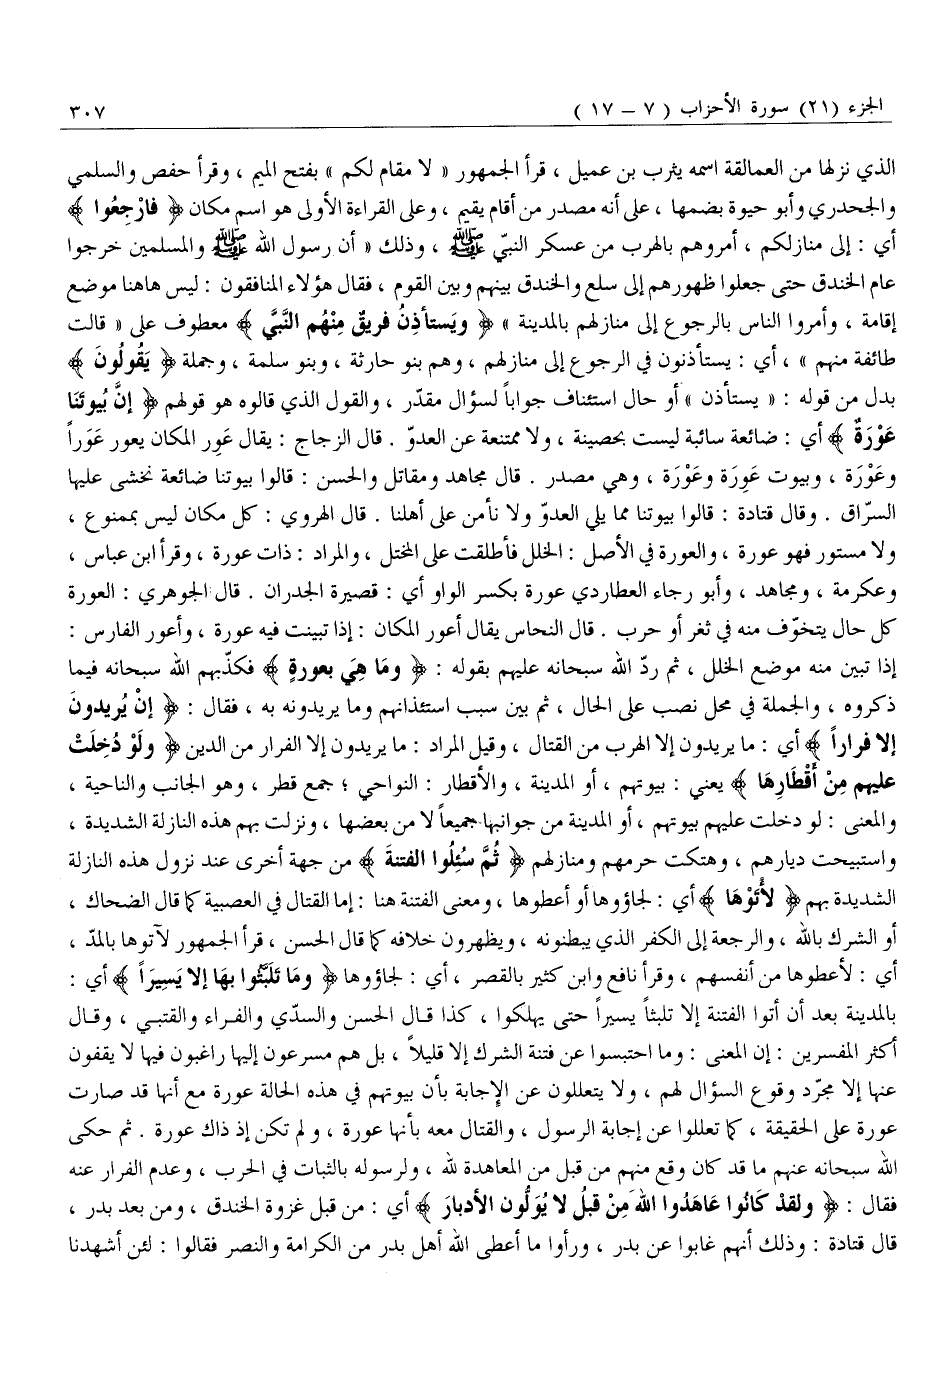 الجزء (٢١) سورة الأحزاب ( ٧ – ١٧ ) ٣٠٧
الذي نزلها من العمالقة اسمه يثرب بن عميل ، قرأ الجمهور « لا مقام لكم » بفتح الميم ، وقرأ حفص والسلمي
والجحدري وأبو حيوة بضمها ، على أنه مصدر من أقام يقيم ، وعلى القراءة الأولى هو اسم مكان ﴿ فارْجِعُوا ﴾
أي : إلى منازلكم ، أمروهم بالهرب من عسكر النبيّ ﷺ ، وذلك « أن رسول الله ﷺ والمسلمين خرجوا
عام الخندق حتى جعلوا ظهورهم إلى سلع والخندق بينهم وبين القوم ، فقال هؤلاء المنافقون : ليس هاهنا موضع
إقامة ، وأمروا الناس بالرجوع إلى منازلهم بالمدينة » ﴿ ويَستأذِنُ فريقٌ مِنْهُم النَّبيَّ ﴾ معطوف على « قالت
طائفة منهم » ، أي : يستأذنون في الرجوع إلى منازلهم ، وهم بنو حارثة ، وبنو سلمة ، وجملة ﴿ يَقُولُونَ ﴾
بدل من قوله : « يستأذن » أو حال استئناف جواباً لسؤال مقدّر ، والقول الذي قالوه هو قولهم ﴿ إنَّ بُيوتَنَا
عَوْرَةٌ ﴾ أي : ضائعة سائبة ليست بحصينة ، ولا ممتنعة عن العدوّ . قال الزجاج : يقال عَوِر المكان يعور عَوَراً
وعَوْرَة ، وبيوت عَوِرَة وعَوْرَة ، وهي مصدر . قال مجاهد ومقاتل والحسن : قالوا بيوتنا ضائعة نخشى عليها
السرّاق . وقال قتادة : قالوا بيوتنا مما يلي العدوّ ولا نأمن على أهلنا . قال الهروي : كل مكان ليس بممنوع ،
ولا مستور فهو عورة ، والعورة في الأصل : الخلل فأطلقت على المختل ، والمراد : ذات عورة ، وقرأ ابن عباس ،
وعكرمة ، ومجاهد ، وأبو رجاء العطاردي عورة بكسر الواو أي : قصيرة الجدران . قال الجوهري : العورة
كل حال يتخوّف منه في ثغر أو حرب . قال النحاس يقال أعور المكان : إذا تبينت فيه عورة ، وأعور الفارس :
إذا تبين منه موضع الخلل ، ثم ردّ الله سبحانه عليهم بقوله : ﴿ ومَا هِيَ بعورةٍ ﴾ فكذّبهم الله سبحانه فيما
ذكروه ، والجملة في محل نصب على الحال ، ثم بين سبب استئذانهم وما يريدونه به ، فقال : ﴿ إنْ يُريدونَ
إلا فراراً ﴾ أي : ما يريدون إلا الهرب من القتال ، وقيل المراد : ما يريدون إلا الفرار من الدين ﴿ ولَوْ دُخِلَتْ
عليهم مِنْ أَقْطَارِهَا ﴾ يعني : بيوتهم ، أو المدينة ، والأقطار : النواحي ؛ جمع قطر ، وهو الجانب والناحية ،
والمعنى : لو دخلت عليهم بيوتهم ، أو المدينة من جوانبها جميعاً لا من بعضها ، ونزلت بهم هذه النازلة الشديدة ،
واستبيحت ديارهم ، وهتكت حرمهم ومنازلهم ﴿ ثُمَّ سُئِلُوا الفتنةَ ﴾ من جهة أخرى عند نزول هذه النازلة
الشديدة بهم ﴿ لأُتَوْهَا ﴾ أي : لجاؤوها أو أعطوها ، ومعنى الفتنة هنا : إما القتال في العصبية كما قال الضحاك ،
أو الشرك بالله ، والرجعة إلى الكفر الذي يبطنونه ، ويظهرون خلافه كما قال الحسن ، قرأ الجمهور لآتوها بالمدّ ،
أي : لأعطوها من أنفسهم ، وقرأ نافع وابن كثير بالقصر ، أي : لجاؤوها ﴿ ومَا تَلَبَّثُوا بهَا إلا يَسِيرَاً ﴾ أي :
بالمدينة بعد أن أتوا الفتنة إلا تلبثاً يسيراً حتى يهلكوا ، كذا قال الحسن والسدّي والفراء والقتبي ، وقال
أكثر المفسرين : إن المعنى : وما احتبسوا عن فتنة الشرك إلا قليلاً ، بل هم مسرعون إليها راغبون فيها لا يقفون
عنها إلا مجرّد وقوع السؤال لهم ، ولا يتعللون عن الإجابة بأن بيوتهم في هذه الحالة عورة مع أنها قد صارت
عورة على الحقيقة ، كما تعللوا عن إجابة الرسول ، والقتال معه بأنها عورة ، ولم تكن إذ ذاك عورة . ثم حكى
الله سبحانه عنهم ما قد كان وقع منهم من قبل من المعاهدة لله ، ولرسوله بالثبات في الحرب ، وعدم الفرار عنه
فقال : ﴿ ولقدْ كَانُوا عَاهَدُوا اللهَ مِنْ قبلُ لا يُوَلُّون الأدبارَ ﴾ أي : من قبل غزوة الخندق ، ومن بعد بدر ،
قال قتادة : وذلك أنهم غابوا عن بدر ، ورأوا ما أعطى الله أهل بدر من الكرامة والنصر فقالوا : لئن أشهدنا